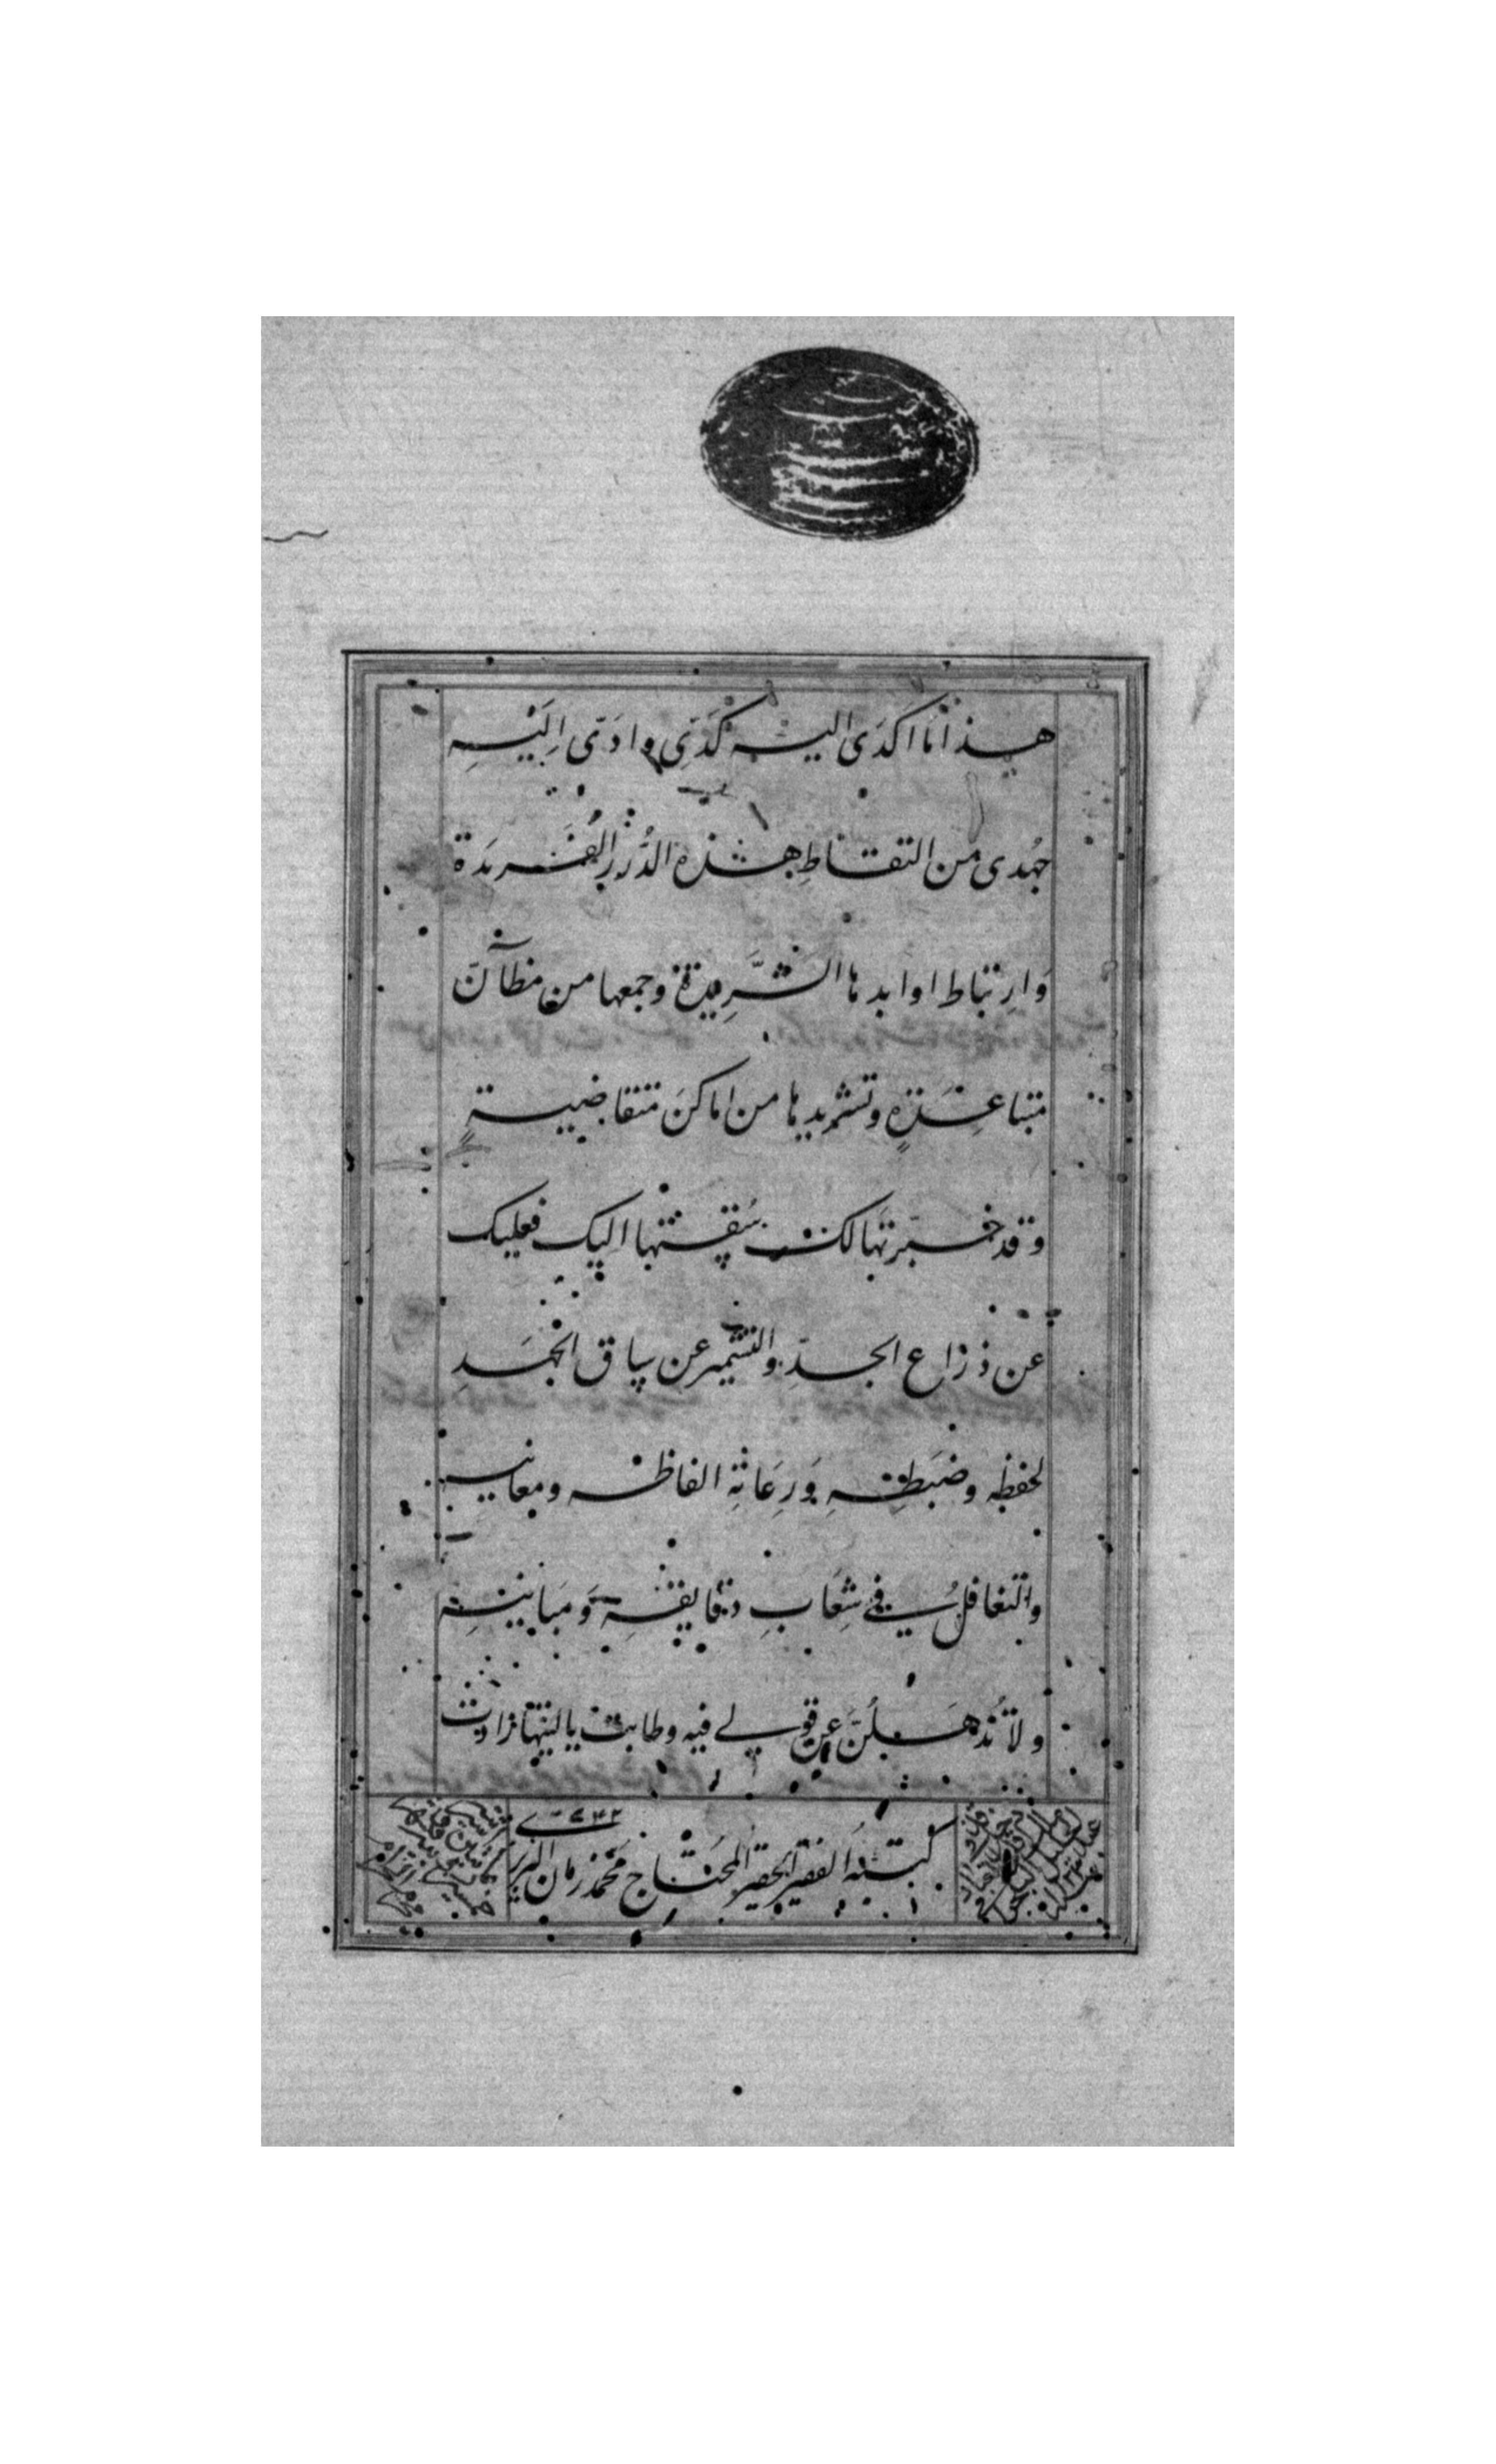 هذا ما اكدى اليه كدّى وادّى اِلَيْهِ
جُهدى من التقاطِ هذه الدُّرَرِ الفَريدَة
وَارتباط اوابدها الشَّرِيدة وجمعها من مظآنّ
متباعِدَةٍ وتشريدها من اماكنَ متقاضيةٍ
وقد خمّرتها لك سُقتها اليك فعليك
عن ذراع الجدّ والتشمير عن ساق الجَهدِ
لحفظه وضَبطِه وَرِعَاية الفاظه ومعانيه
والتغافل فى شِعَابِ دقايقه وَمَبانيه
ولا تُذهَلَنَّ عن قولى فيه وطابت ياليتها زادت
كتبه الفقير الحقير المحتاج محمّد زمان التبريزى